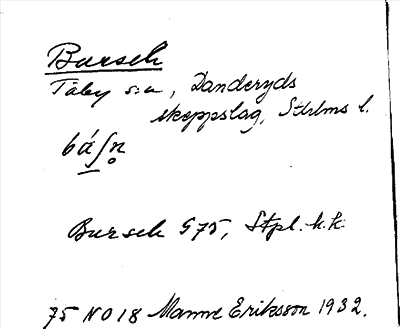 Bursch
Täby sn, Danderyds
skeppslag, Sthlms l.
Bursch G75, Stpl. h.k.
75 NO 18 Manne Eriksson 1932.